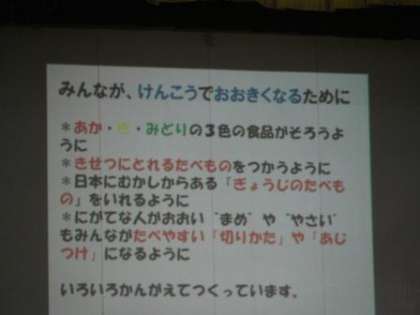 みんなが、けんこうでおおきくなるために
＊あか・き・みどりの３色の食品がそろうよ
うに
＊きせつにとれるたべものをつかうように
＊日本にむかしからある「ぎょうじのたべも
の」をいれるように
＊にがてな人がおおい“まめ”や“やさい”
もみんながたべやすい「切りかた」や「あじ
つけ」になるように
いろいろかんがえてつくっています。